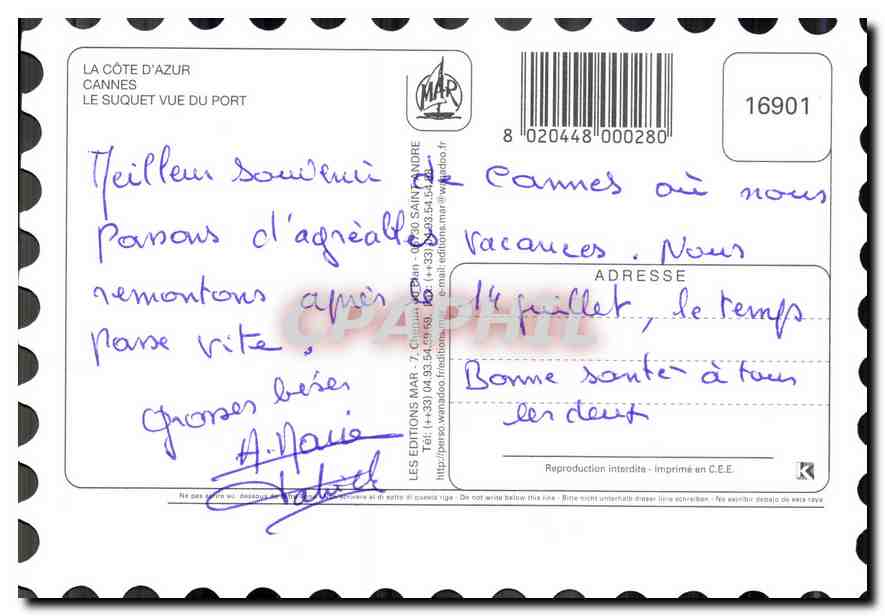 LA CÔTE D'AZUR
CANNES
LE SUQUET VUE DU PORT
MAR
8 020448 000280
16901
Meilleur souvenir de Cannes où nous
passons d'agréables vacances. Nous
remontons après le 14 juillet, le temps
passe vite.
Bonne santé à tous
les deux
Grosses bises
A. Marie
Patrick
ADRESSE
LES EDITIONS MAR - 7, Chemin du Plan - 06730 SAINT ANDRE
Tél: (++33) 04.93.54.59.69 Fax: (++33) 04.93.54.54.28
http://perso.wanadoo.fr/editions.mar e-mail:editions.mar@wanadoo.fr
CPAPHIL
Reproduction interdite - Imprimé en C.E.E.
K
Ne pas écrire au dessous de cette ligne - Non scrivere al di sotto di questa riga - Do not write below this line - Bitte nicht unterhalb dieser linie schreiben - No escribir debajo de esta raya